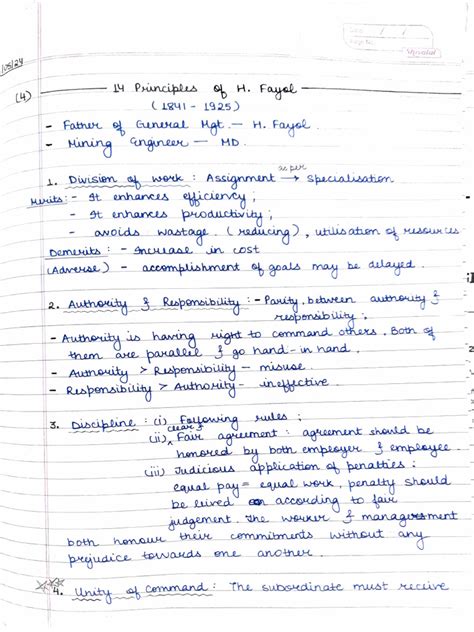 /05/24
(4)
14 Principles of H. Fayol
(1841 - 1925)
- Father of General Mgt. - H. Fayol.
- Mining Engineer — MD.
as per
1. Division of work : Assignment → Specialisation
Merits : - It enhances efficiency ;
- It enhances productivity ;
- avoids wastage. (reducing), utilisation of resources
Demerits : - Increase in cost
(Adverse) - accomplishment of goals may be delayed.
2. Authority & Responsibility : - Parity between authority &
responsibility ;
- Authority is having right to command others. Both of
them are parallel & go hand-in hand.
- Authority > Responsibility - misuse.
- Responsibility > Authority - ineffective.
3. Discipline : (i) Following rules ;
clear &
(ii) Fair agreement : agreement should be
honored by both employer & employee.
(iii) Judicious application of penalties :
equal pay = equal work, penalty should
be levied according to fair
judgement. The worker & management
both honour their commitments without any
prejudice towards one another.
4. Unity of Command : The subordinate must receive